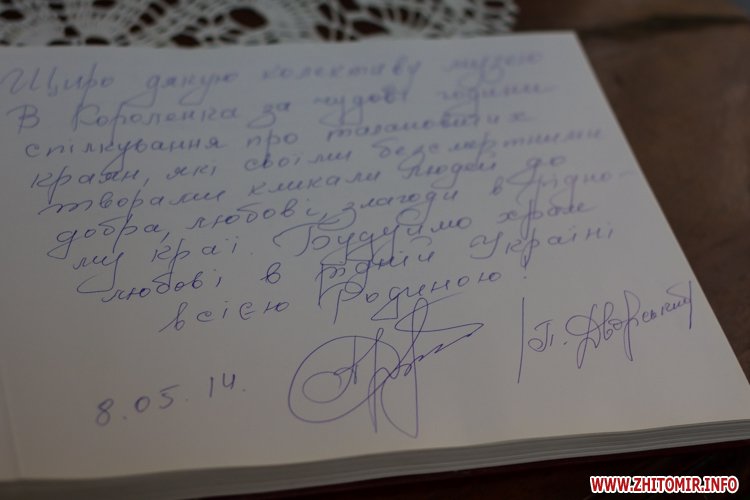 Щиро дякую колективу музею
В Короленка за чудові години
спілкування про талановитих
краян, які своїми безсмертними
творами кликали людей до
добра, любові, злагоди в рідно-
му краї. Будуймо храм
любові в рідній Україні
всією Родиною!
8.05.14.
/П. Дворський/
WWW.ZHITOMIR.INFO